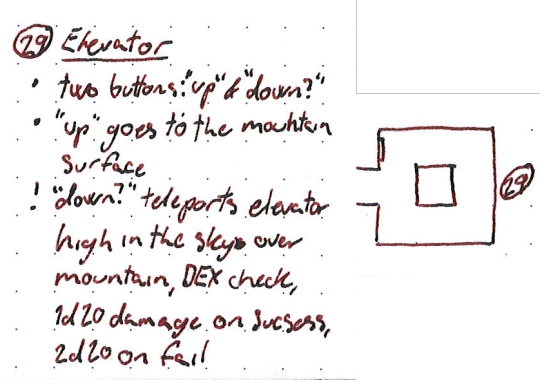 29 Elevator
• two buttons: "up" & "down?"
• "up" goes to the mountain
surface
! "down?" teleports elevator
high in the sky over
mountain, DEX check,
1d20 damage on sucsess,
2d20 on fail
29